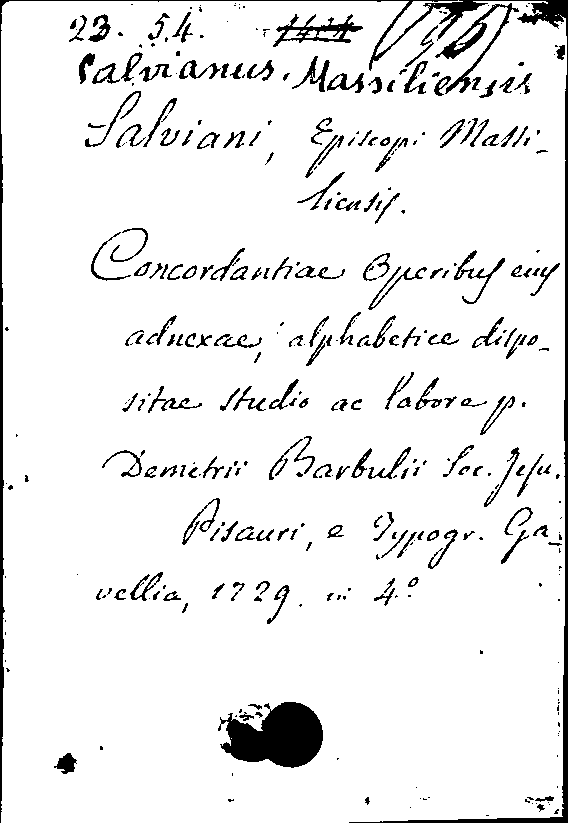 23. 5.4.
Salvianus. Massiliensis
Salviani, Episcopi Massi-
liensis.
Concordantiae Operibus eius
adnexae, alphabetice dispo-
sitae studio ac labore p.
Demetrii Barbulii Soc. Jesu.
Pisauri, e Typogr. Ga-
vellia, 1729. in 4.º